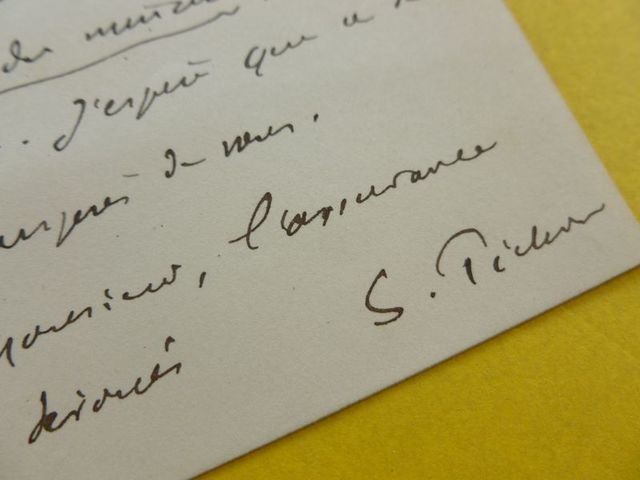 du
. J'espère que
auprès de vous.
Monsieur, l'assurance
dévoués
S. Pichon